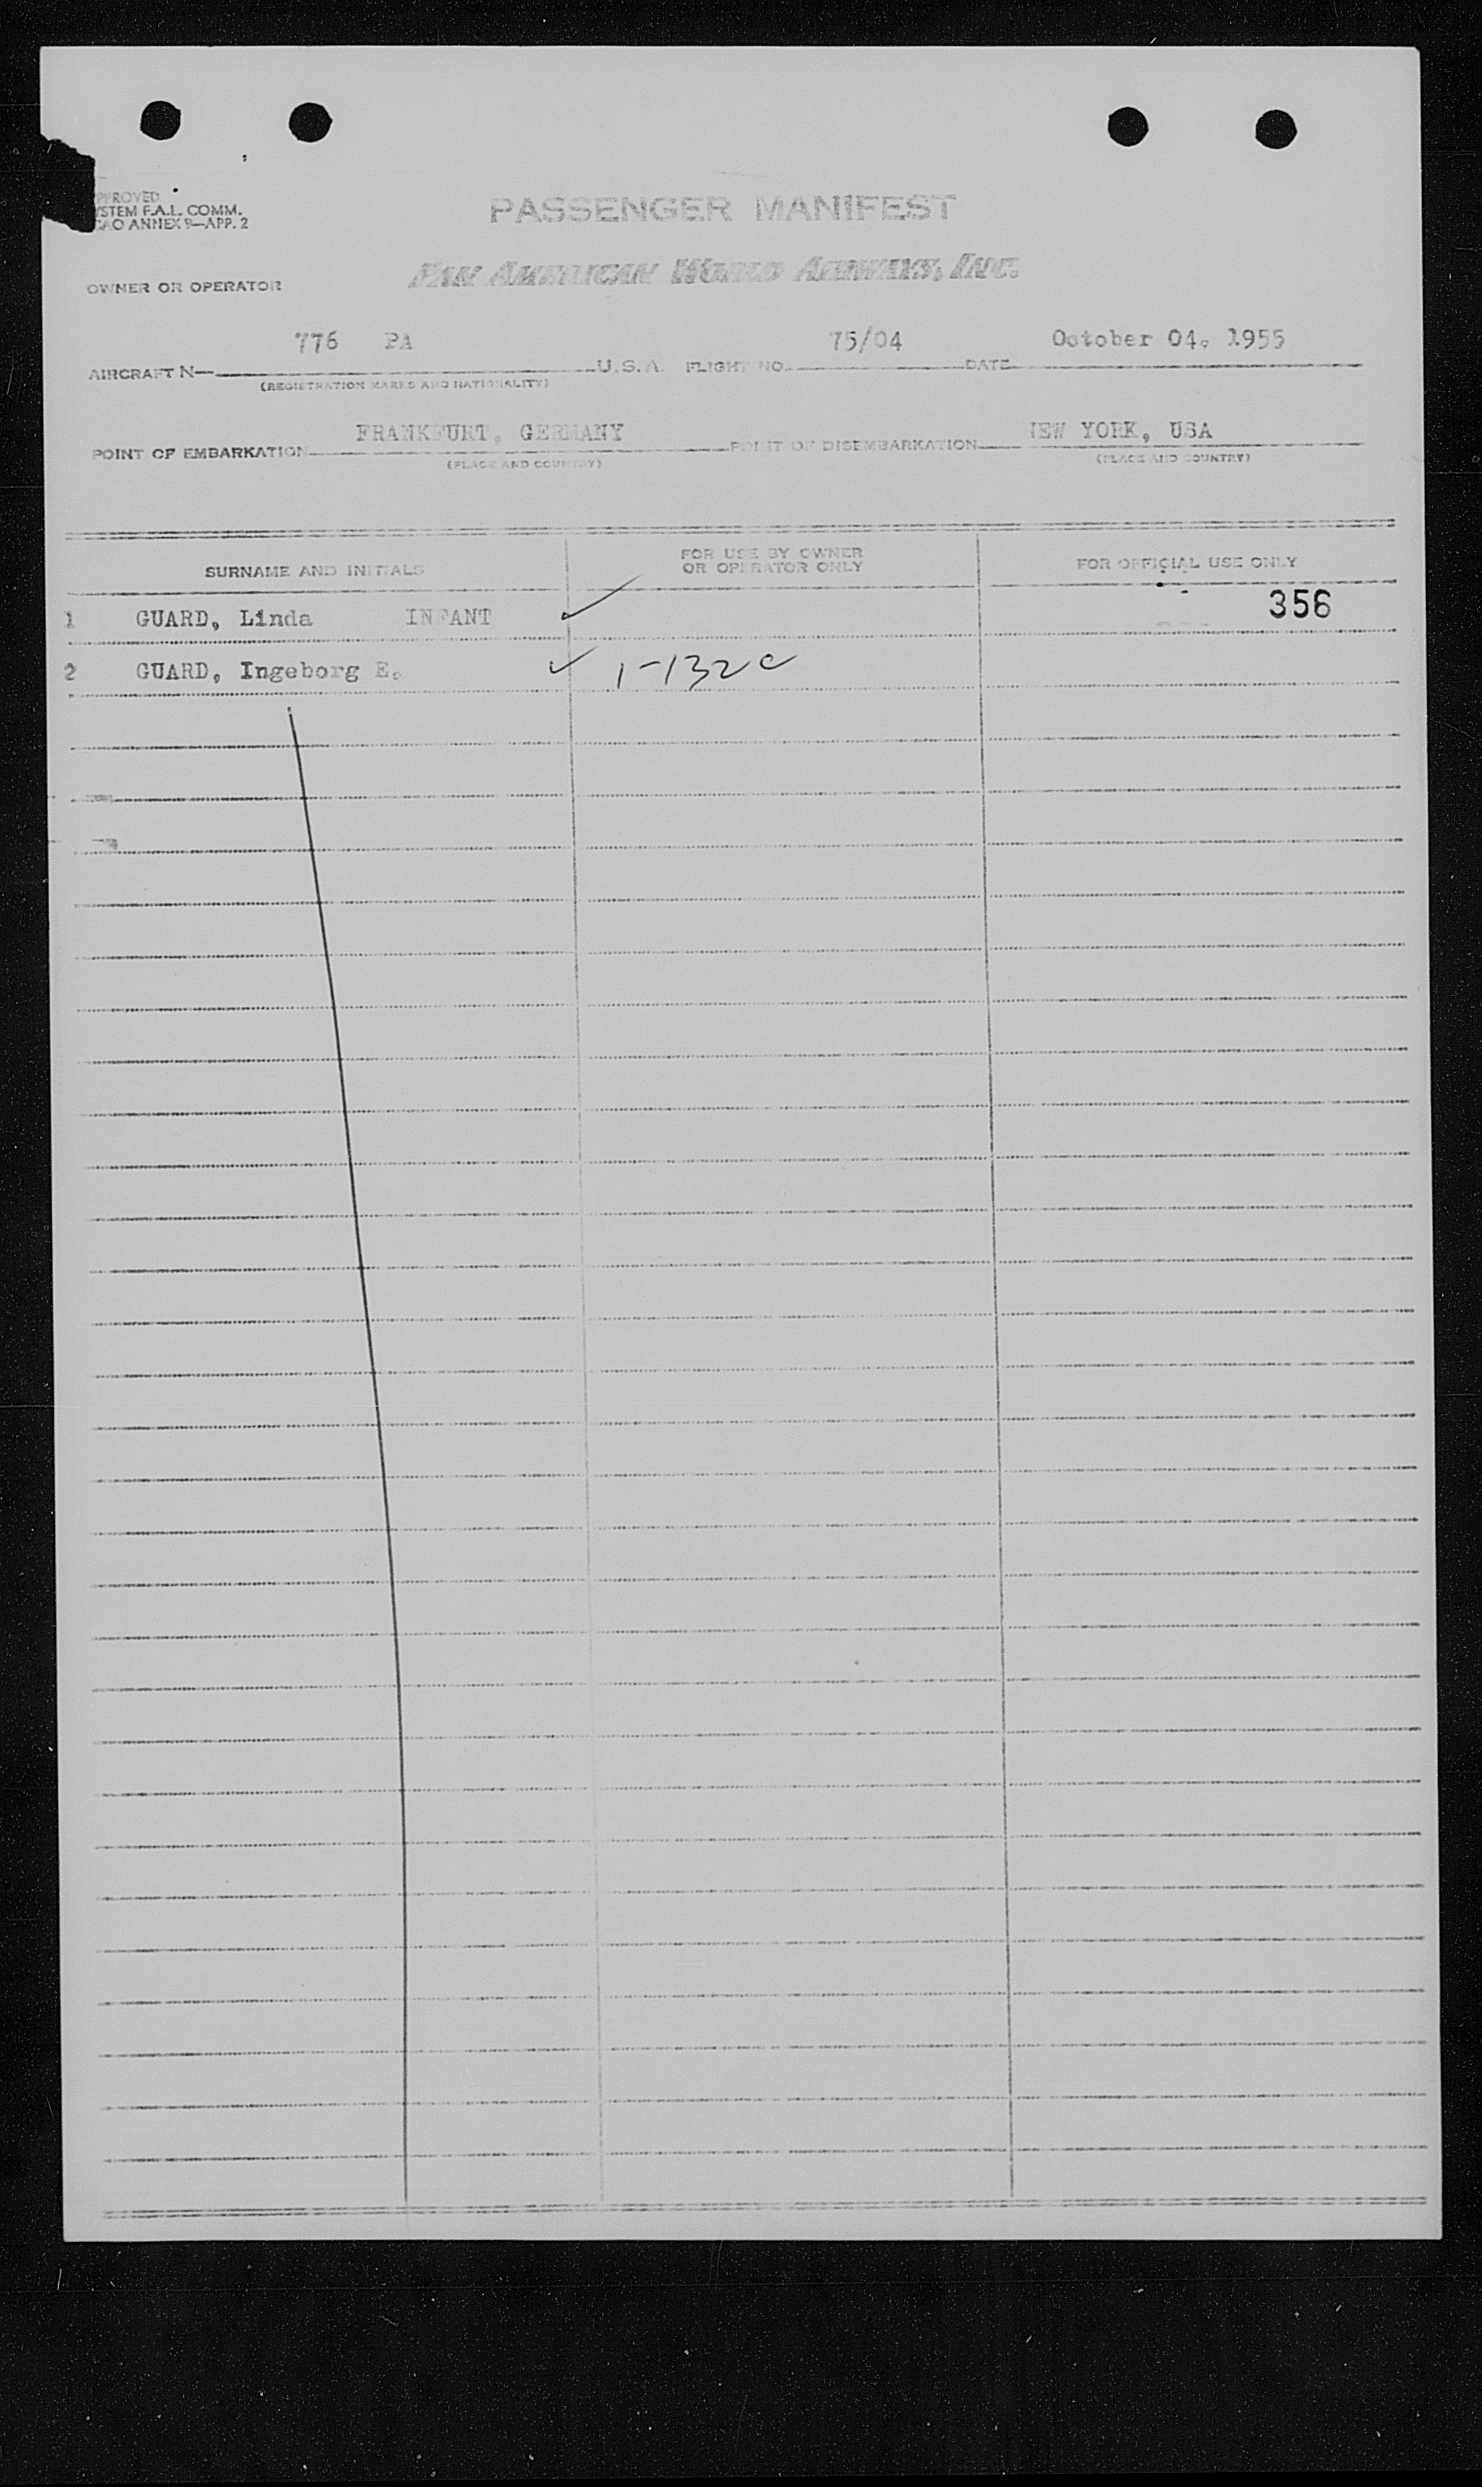 PPROVED
YSTEM F.A.L. COMM.
CAO ANNEX 9—APP. 2
PASSENGER MANIFEST
PAN AMERICAN WORLD AIRWAYS, INC.
OWNER OR OPERATOR
776 PA 75/04 October 04. 1955
AIRCRAFT N— U.S.A. FLIGHT NO. DATE
(REGISTRATION MARKS AND NATIONALITY)
FRANKFURT, GERMANY NEW YORK, USA
POINT OF EMBARKATION POINT OF DISEMBARKATION
(PLACE AND COUNTRY) (PLACE AND COUNTRY)
SURNAME AND INITIALS FOR USE BY OWNER OR OPERATOR ONLY FOR OFFICIAL USE ONLY
356
1 GUARD, Linda INFANT ✓
2 GUARD, Ingeborg E. ✓ 1-132c